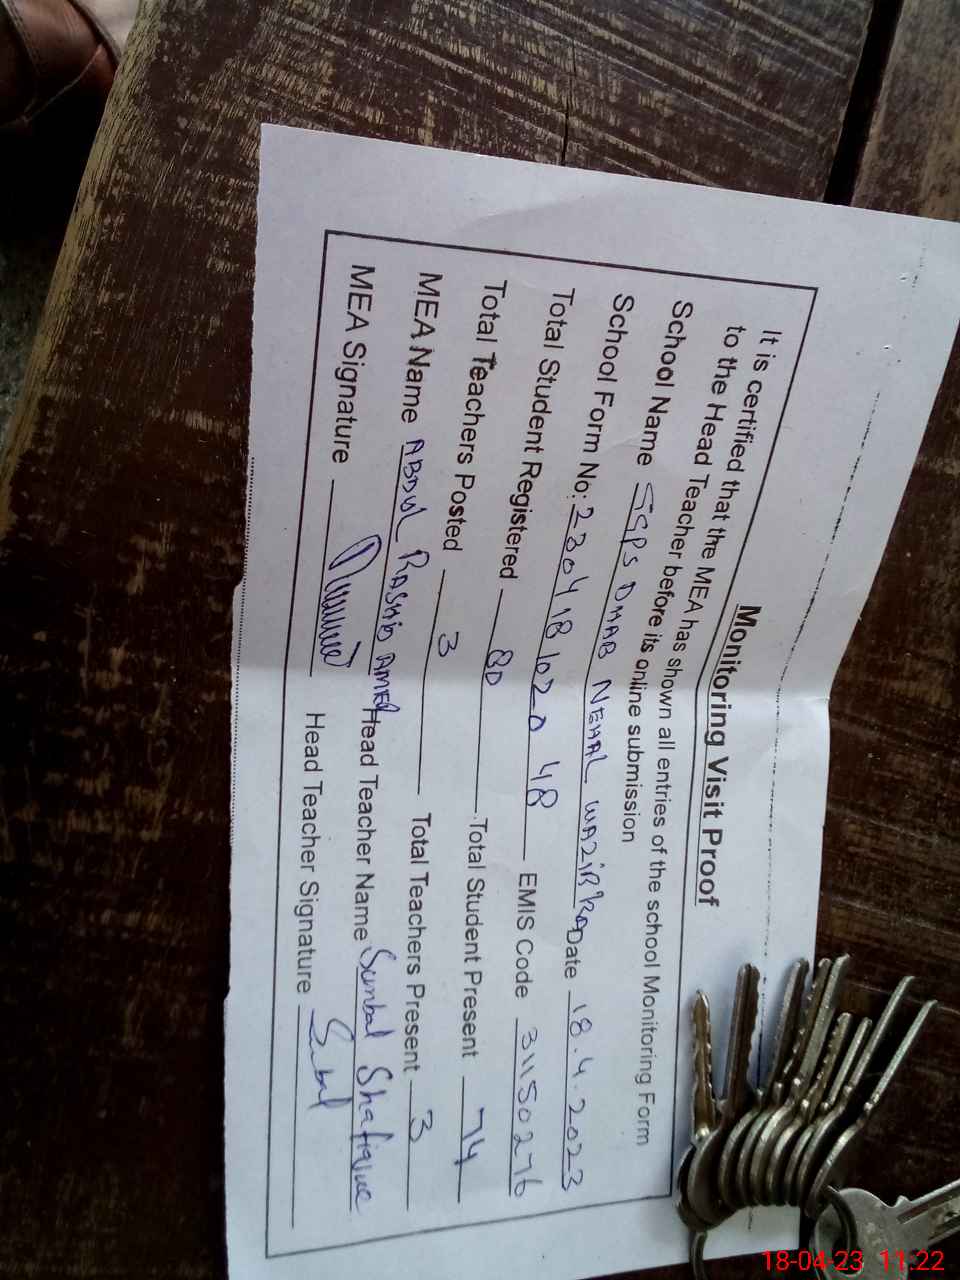 Monitoring Visit Proof
It is certified that the MEA has shown all entries of the school Monitoring Form
to the Head Teacher before its online submission
School Name GGPS DHAB NEHAL WAZIRKA Date 18.4.2023
School Form No: 2304181020 48 EMIS Code 31150276
Total Student Registered 80 Total Student Present 74
Total Teachers Posted 3 Total Teachers Present 3
MEA Name ABDUL RASHID AMER Head Teacher Name Sunbal Shafique
MEA Signature Head Teacher Signature Sunbal
18-04-23 11:22